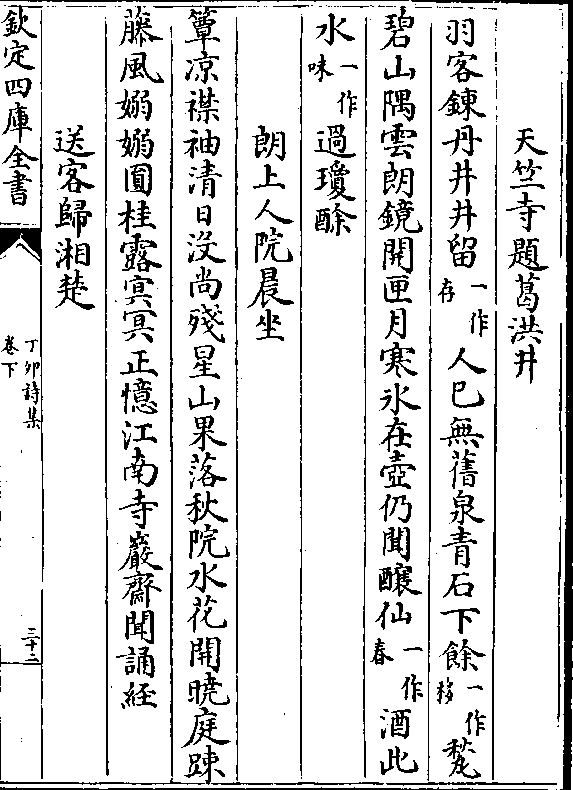 天竺寺題葛洪井
羽客鍊丹井井留一作存人已無舊泉青石下餘一作移甃
碧山隅雲朗鏡開匣月寒氷在壺仍聞釀仙一作春酒此
水一作味過瓊酴
朗上人院晨坐
簟凉襟袖清日沒尚殘星山果落秋院水花開曉庭踈
藤風嫋嫋圓桂露㝠㝠正憶江南寺巖齋聞誦經
送客歸湘楚
欽定四庫全書
丁卯詩集
卷下
三十二